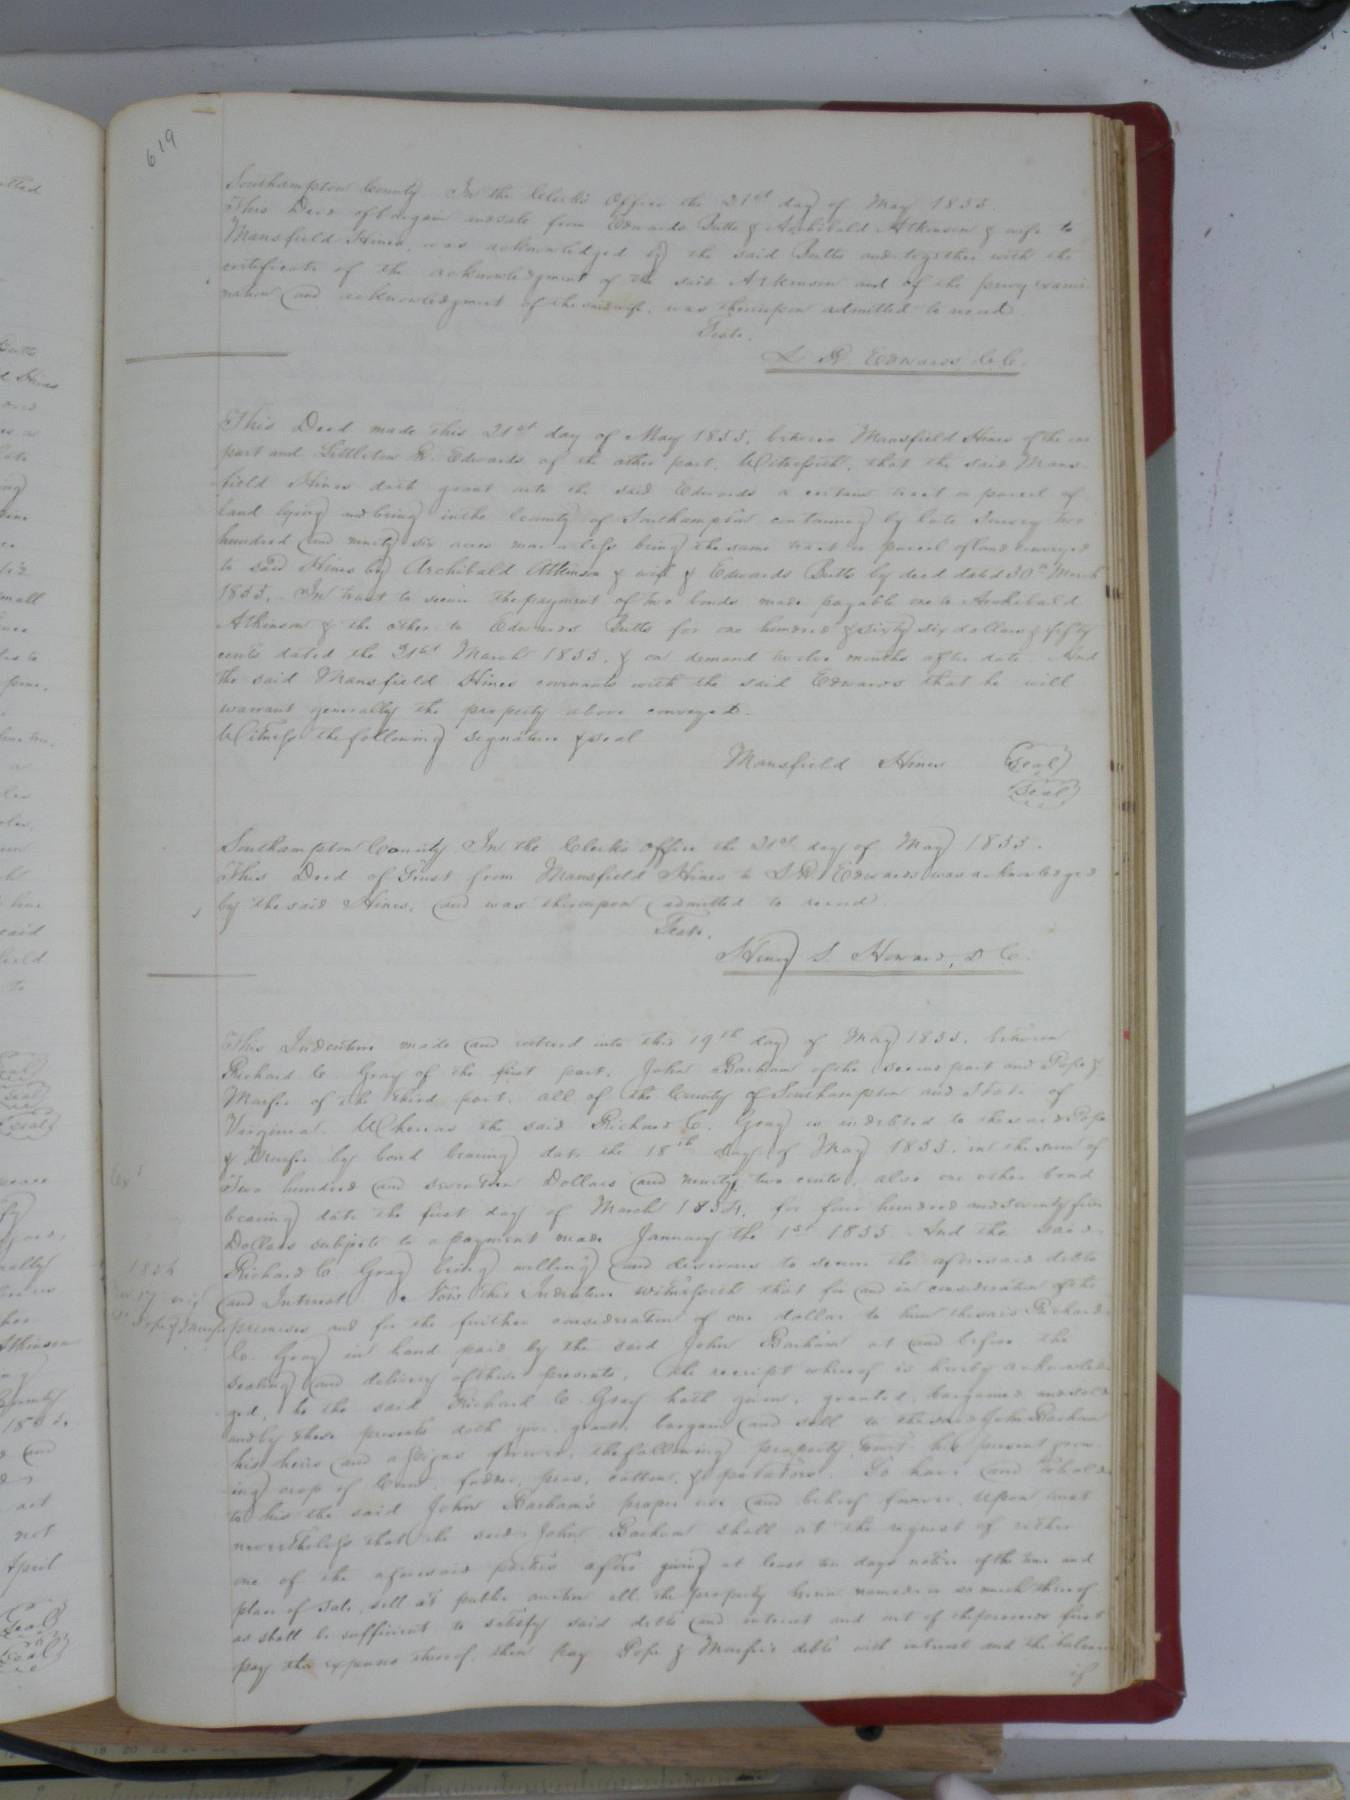 619
Southampton County In the Clerk's Office the 21st day of May 1855.
This Deed of bargain and sale from Edwards Butts & Archibald Atkinson & wife to
Mansfield Hines, was acknowledged by the said Butts and together with the
certificate of the acknowledgment of the said Atkinson and of the privy exami
nation and acknowledgment of the said wife, was thereupon admitted to record
Teste.
L R Edwards Cl C.
This Deed made this 21st day of May 1855, between Mansfield Hines of the one
part and Littleton R. Edwards of the other part, Witnesseth, that the said Mans-
field Hines doth grant unto the said Edwards a certain tract or parcel of
land lying and being in the County of Southampton containing by late Survey two
hundred and ninety six acres more or less being the same tract or parcel of land conveyed
to said Hines by Archibald Atkinson & wife & Edwards Butts by deed dated 30th March
1855. In trust to secure the payment of two bonds made payable one to Archibald
Atkinson & the other to Edwards Butts for one hundred & sixty six dollars & fifty
cents dated the 31st March 1855, & on demand twelve months after date. And
the said Mansfield Hines covenants with the said Edwards that he will
warrant generally the property above conveyed.
Witness the following signature & seal
Mansfield Hines Seal
Seal
Southampton County, In the Clerk's office the 21st day of May 1855.
This Deed of Trust from Mansfield Hines to L R. Edwards was acknowledged
by the said Hines, and was thereupon admitted to record.
Teste.
Henry S. Howard, D C.
This Indenture made and entered into this 19th day of May 1855, between
Richard C. Gray of the first part, John Barham of the second part and Pope &
Murfee of the third part, all of the County of Southampton and State of
Virginia. Whereas the said Richard C. Gray is indebted to the said Pope
& Murfee by bond bearing date the 18th day of May 1855, in the sum of
Two hundred and seventeen Dollars and ninety two cents, also one other bond
bearing date the first day of March 1854, for four hundred and seventy five
Dollars subject to a payment made January the 1st 1855. And the said
Richard C. Gray being willing and desirous to secure the aforesaid debts
and Interest. Now this Indenture witnesseth that for and in consideration of the
premises and for the further consideration of one dollar to him the said Richard
C. Gray in hand paid by the said John Barham at and before the
sealing and delivery of these presents, the receipt whereof is hereby acknowled-
ged, he the said Richard C. Gray hath given, granted, bargained and sold
and by these presents doth give, grant, bargain and sell to the said John Barham
his heirs and assigns forever, the following property, to wit: his present grow-
ing crop of Corn, fodder, peas, cotton, & potatoes. To have and to hold
to his the said John Barham's proper use and behoof forever, Upon trust
nevertheless that he the said John Barham shall at the request of either
one of the aforesaid parties after giving at least ten days notice of the time and
place of Sale, sell at public auction all the property herein named or so much thereof
as shall be sufficient to satisfy said debts and interest and out of the proceeds first
pay the expenses thereof, then pay Pope & Murfee's debts with interest and the balance
if